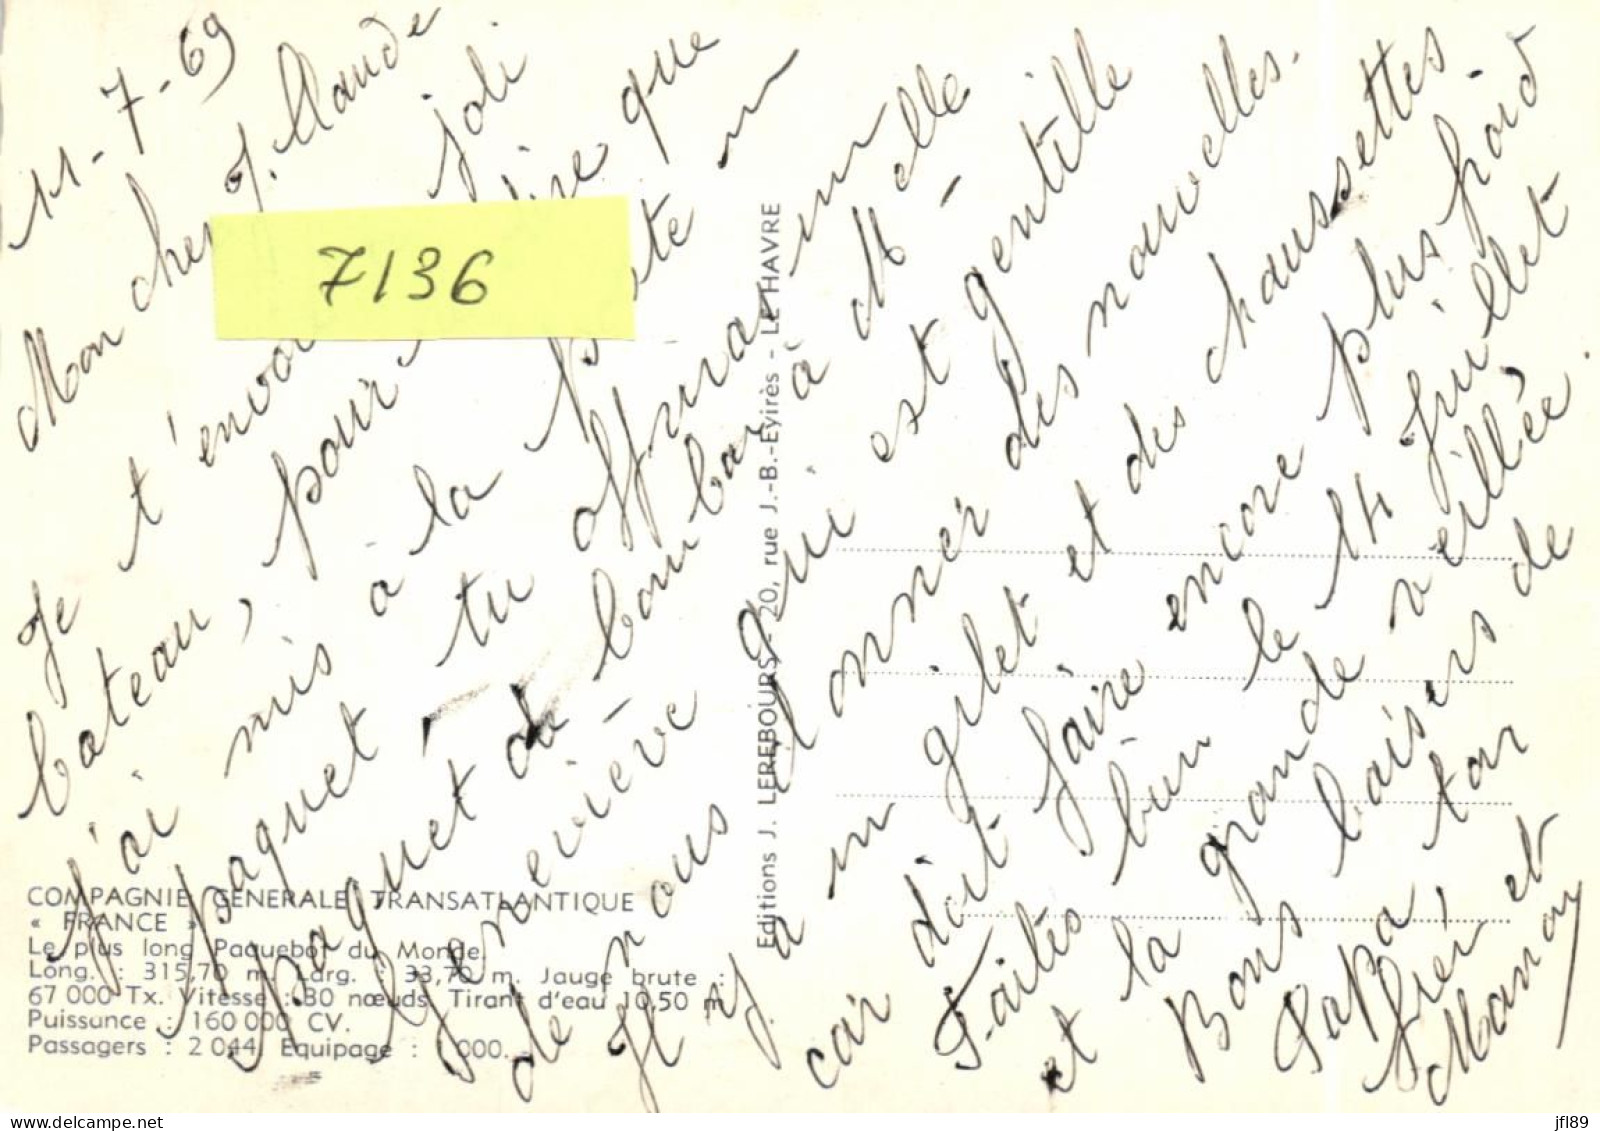 11-7-69
Mon cher J. Claude
Je t'envoi joli
bateau, pour dire que
j'ai mis à la poste un
paquet, tu offriras un
paquet de bonbon à Melle
Geneviève qui est gentille
de nous donner des nouvelles.
Il y a un gilet et des chaussettes
car doit faire encore plus froid
Faites bien le 14 Juillet
et la grande veillée.
Bons baisers de
Papa, ton
frér, et
Maman
7136
COMPAGNIE GENERALE TRANSATLANTIQUE
« FRANCE »
Le plus long Paquebot du Monde.
Long. : 315,70 m. Larg. : 33,70 m. Jauge brute :
67 000 Tx. Vitesse : 30 nœuds. Tirant d'eau 10,50 m
Puissance : 160 000 CV.
Passagers : 2 044 Equipage : 1 000.
Editions J. LEREBOURS - 20, rue J.-B.-Eyriès - LE HAVRE
delcampe.net
jfl89